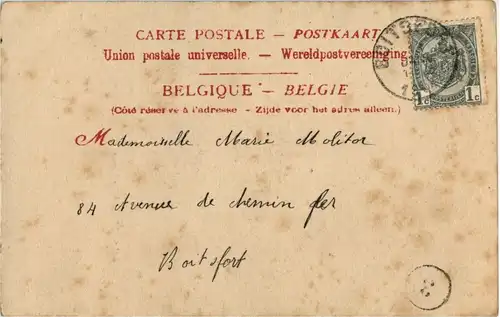 CARTE POSTALE — POSTKAART
Union postale universelle. — Wereldpostvereeniging
BELGIQUE — BELGIE
(Côté réservé à l'adresse - Zijde voor het adres alleen.)
Mademoiselle Marie Molitor
84 Avenue de chemin fer
Boitsfort
1c 1c
2